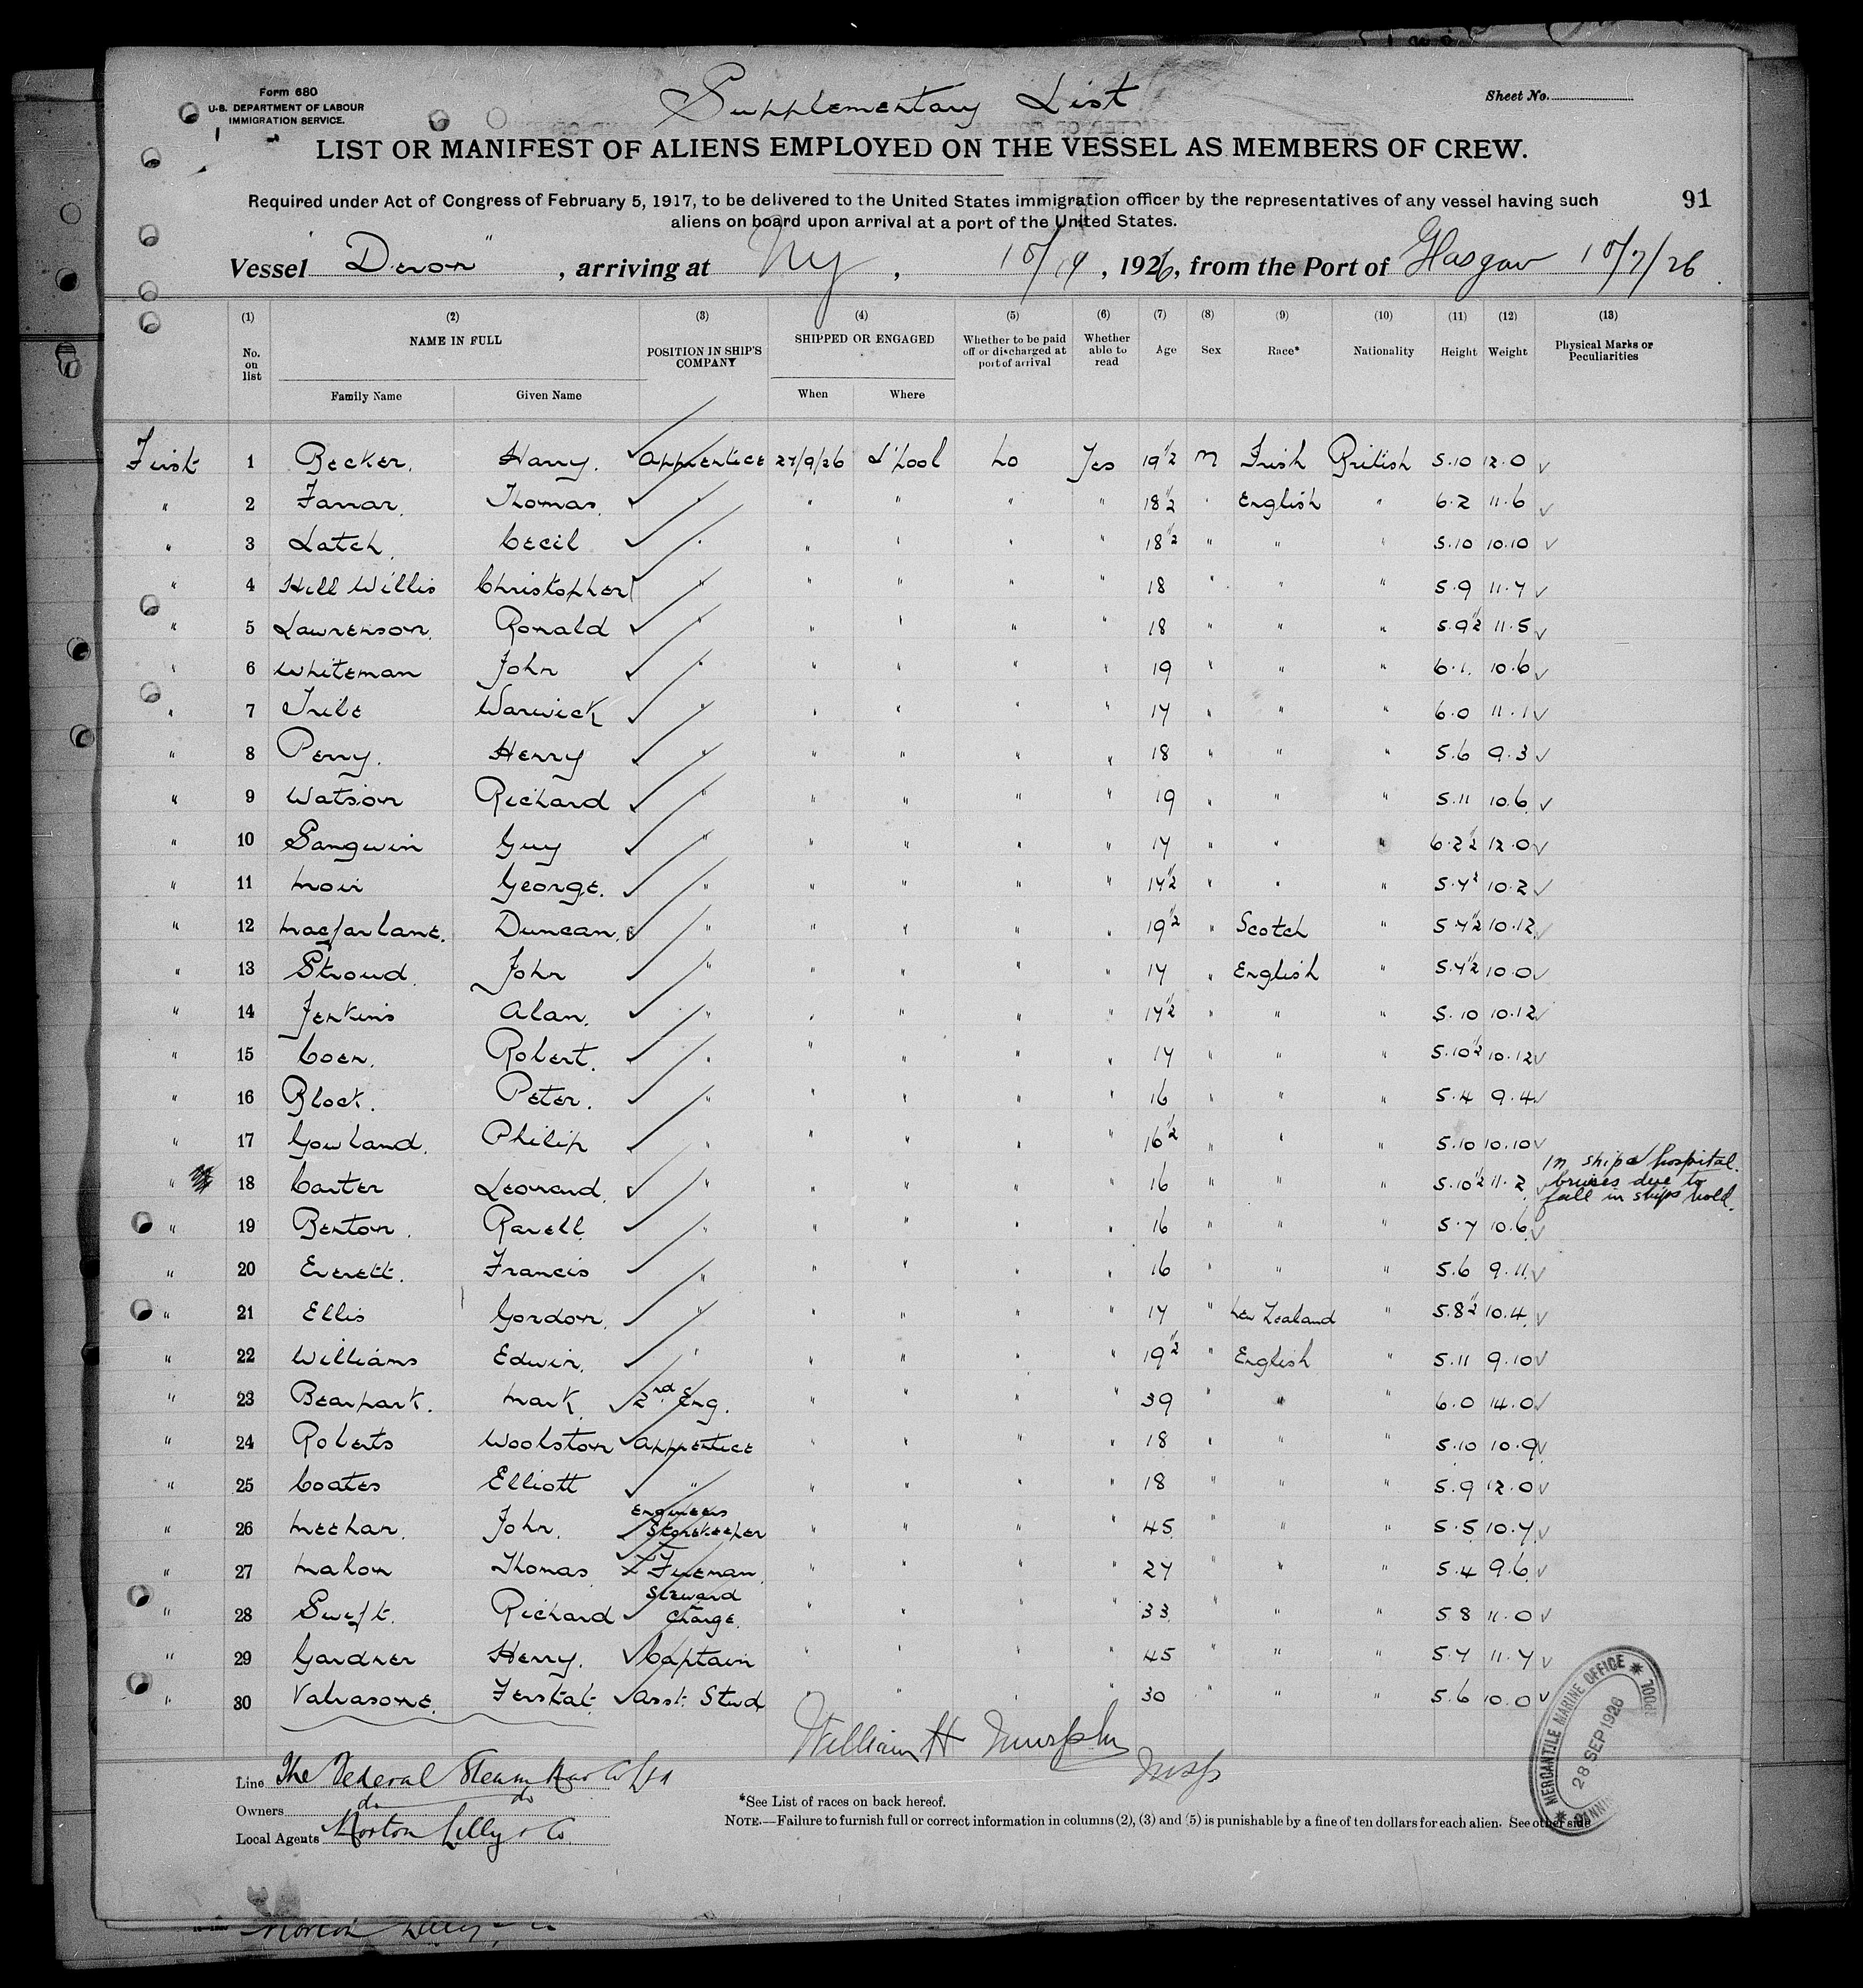 Form 680
U.S. DEPARTMENT OF LABOUR
IMMIGRATION SERVICE.
Supplementary List
Sheet No.
LIST OR MANIFEST OF ALIENS EMPLOYED ON THE VESSEL AS MEMBERS OF CREW.
Required under Act of Congress of February 5, 1917, to be delivered to the United States immigration officer by the representatives of any vessel having such
aliens on board upon arrival at a port of the United States.
91
Vessel Devon " , arriving at NY , 10/19 , 1926, from the Port of Glasgow 10/7/26
(1) (2) (3) (4) (5) (6) (7) (8) (9) (10) (11) (12) (13)
No. on list NAME IN FULL POSITION IN SHIP'S COMPANY SHIPPED OR ENGAGED Whether to be paid off or discharged at port of arrival Whether able to read Age Sex Race* Nationality Height Weight Physical Marks or Peculiarities
Family Name Given Name When Where
First 1 Becker. Harry. Apprentice 27/9/26 L'pool No Yes 19 1/2 M Irish British 5.10 12.0 ✓
" 2 Farrar. Thomas. ✓ " " " " " 18 1/2 " English " 6.2 11.6 ✓
" 3 Latch. Cecil ✓ " " " " " 18 1/2 " " " 5.10 10.10 ✓
" 4 Hill Willis Christopher " " " " " 18 " " " 5.9 11.7 ✓
" 5 Lawrenson. Ronald ✓ " " " " " 18 " " " 5.9 1/2 11.5 ✓
" 6 Whiteman John ✓ " " " " " 19 " " " 6.1. 10.6 ✓
" 7 Tribe Warwick ✓ " " " " " 17 " " " 6.0 11.1 ✓
" 8 Perry. Henry ✓ " " " " " 18 " " " 5.6 9.3 ✓
" 9 Watson Richard ✓ " " " " " 19 " " " 5.11 10.6 ✓
" 10 Sangwin Guy ✓ " " " " " 17 " " " 6.2 1/2 12.0 ✓
" 11 Moir George. ✓ " " " " " 17 1/2 " " " 5.7 1/2 10.2 ✓
" 12 Macfarlane. Duncan. " " " " " 19 1/2 " Scotch " 5.7 1/2 10.12 ✓
" 13 Stroud. John ✓ " " " " " 17 " English " 5.7 1/2 10.0 ✓
" 14 Jenkins Alan. ✓ " " " " " 17 1/2 " " " 5.10 10.12 ✓
" 15 Coen. Robert. ✓ " " " " " 17 " " " 5.10 1/2 10.12 ✓
" 16 Block. Peter. ✓ " " " " " 16 " " " 5.4 9.4 ✓
" 17 Gowland. Philip ✓ " " " " " 16 1/2 " " " 5.10 10.10 ✓
" 18 Carter Leonard. ✓ " " " " " 16 " " " 5.10 1/2 11.2 ✓ In ships hospital.
bruises due to
fall in ships hold.
" 19 Benton. Ravell ✓ " " " " " 16 " " " 5.7 10.6 ✓
" 20 Everett. Francis ✓ " " " " " 16 " " " 5.6 9.11 ✓
" 21 Ellis Gordon. ✓ " " " " " 17 " New Zealand " 5.8 1/2 10.4 ✓
" 22 Williams Edwin. ✓ " " " " " 19 1/2 " English " 5.11 9.10 ✓
" 23 Bearpark. Mark ✓ 2nd Eng. " " " " 39 " " " 6.0 14.0 ✓
" 24 Roberts Woolston ✓ Apprentice " " " " 18 " " " 5.10 10.9 ✓
" 25 Coates Elliott ✓ " " " " " 18 " " " 5.9 12.0 ✓
" 26 Meehan. John. ✓ Engineers Storekeeper " " " " 45 " " " 5.5 10.7 ✓
" 27 Mahon Thomas Fireman. " " " " 27 " " " 5.4 9.6 ✓
" 28 Swift. Richard ✓ Steward Charge. " " " " 33 " " " 5.8 11.0 ✓
" 29 Gardner Henry. ✓ Captain " " " " 45 " " " 5.7 11.7 ✓
" 30 Valvasone. ✓ Asst. Stwd " " " " 30 " " " 5.6 10.0 ✓
William H Murphy
Insp
MERCANTILE MARINE OFFICE
28 SEP 1926
Line The Federal Steam Nav Co Ltd
Owners do do
Local Agents Norton Lilly & Co.
*See List of races on back hereof.
NOTE.—Failure to furnish full or correct information in columns (2), (3) and (5) is punishable by a fine of ten dollars for each alien. See other side
Norton Lilly & Co